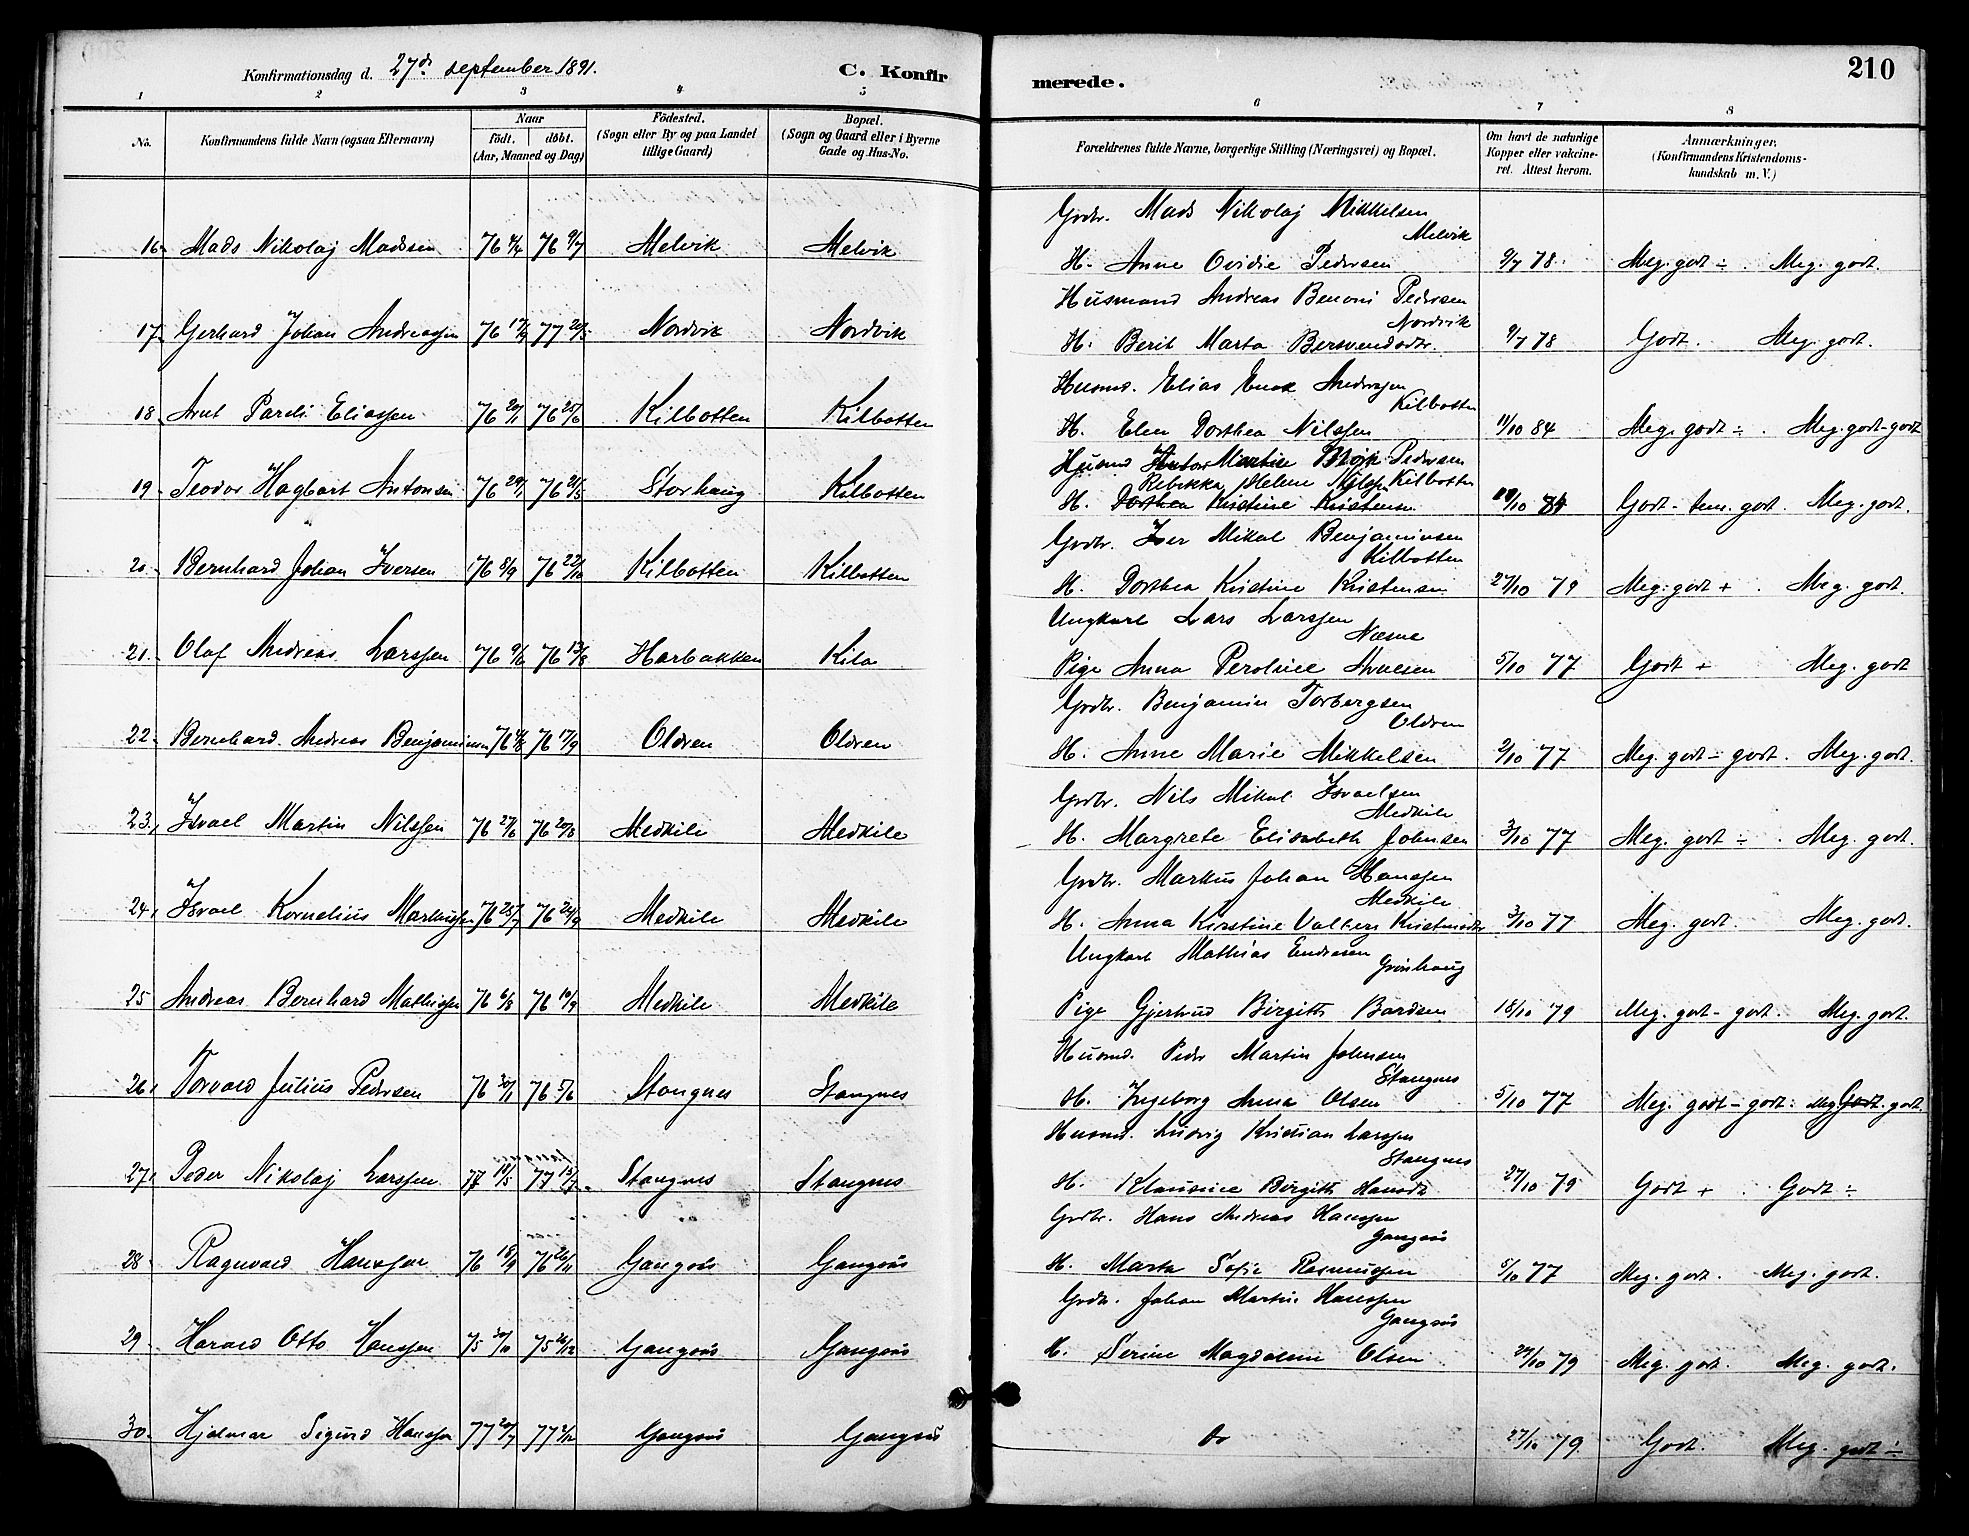 Konfirmationsdag d. 27de september 1891. C. Konfir
merede. 210
1 2 3 4 5 6 7 8
No. Konfirmandens fulde Navn (ogsaa Efternavn) Naar födt. döbt. (Aar, Maaned og Dag) Födested. (Sogn eller By og paa Landet tillige Gaard) Bopæl. (Sogn og Gaard eller i Byerne Gade og Hus-No. Forældrenes fulde Navne, borgerlige Stilling (Næringsvei) og Bopæl. Om havt de naturlige Kopper eller vakcineret. Attest herom. Anmærkninger. (Konfirmandens Kristendomskundskab m. V.)
Grdbr. Mads Nikolaj Mikkelsen
Melvik
16 Mads Nikolaj Madssen 76 76 9/7 Melvik Melvik H. Anne Ovidie Pedersen 9/7 78. Meg. godt ÷ . Meg. godt.
Husmand Andreas Benoni Pedersen
Nordvik
17 Gerhard Johan Andreassen 76 17/9 77 20/5 Nordvik Nordvik H. Berit Marta Bersvendsdtr. 9/7 78 Godt. Meg. godt.
Husmd. Elias Enok Andersen
Kilbotten
18 Arnt Pareli Eliassen 76 20/1 76 25/6 Kilbotten Kilbotten H. Elen Dorthea Nilssen 11/10 84 Meg. godt ÷ . Meg. godt-godt
Husmd Anton Martin Pedersen
Rebekka Helene Nilsen Kilbotten
19 Teodor Hagbart Antonsen 76 29/1 76 21/5 Storhaug Kilbotten H. Dorthea Kristine Kristensen /10 84 Godt - tem. godt. Meg. godt.
Grdbr. Iver Mikal Benjaminsen
Kilbotten
20 Bernhard Johan Iversen 76 8/9 76 22/10 Kilbotten Kilbotten H. Dorthea Kristine Kristensen 27/10 79 Meg. godt + . Meg. godt.
Ungkarl Lars Larssen
Næsne
21. Olaf Andreas Larssen 76 9/6 76 13/8 Harbakken Kila Pige Anna Peroline Arnesen 5/10 77 Godt + Meg. godt
Grdbr. Benjamin Torbergsen
Oldren
22 Bernhard Andreas Benjaminsen 76 76 17/9 Oldren Oldren H. Anne Marie Mikkelsen 2/10 77 Meg. godt - godt. Meg. godt.
Grdbr. Nils Mikal Israelsen
Medkile
23. Israel Martin Nilssen 76 27/6 76 20/8 Medkile Medkile H. Margrete Elisabeth Johnsen 3/10 77 Meg. godt ÷ . Meg. godt.
Grdbr. Markus Johan Hanssen
Medkile
24 Israel Kornelius Markussen 76 25/7 76 24/9 Medkile Medkile H. Anna Kirstine Kristensdtr 3/10 77 Meg. godt. Meg. godt.
Ungkarl Mathias Endresen
Grønhaug
25 Andreas Bernhard Mathissen 76 6/8 76 10/9 Medkile Medkile Pige Gjertrud Birgitte Bardsen 18/10 79 Meg. godt - godt. Meg. godt.
Husmd. Peder Martin Johnsen
Stangnes
26 Torvald Julius Pedersen 76 30/1 76 5/6 Stangnes Stangnes H. Ingeborg Anna Olsen 5/10 77 Meg. godt - godt. Meg. Godt. godt
Husmd. Ludvig Kristian Larssen
Stangnes
27 Peder Nikolaj Larssen 77 18/5 77 15/7 Stangnes Stangnes H. Klausine Birgitte Hansdtr 27/10 79 Godt + . Godt ÷
Grdbr. Hans Andreas Hanssen
Gangsås
28 Ragnvald Hanssen 76 18/9 76 26/11 Gangsås Gangsås H. Marta Sofie Rasmussen 5/10 77 Meg. godt. Meg. godt.
Grdbr. Johan Martin Hanssen
Gangsås
29 Harald Otto Hanssen 75 30/10 75 26/12 Gangsås Gangsås H. Serine Magdalene Olsen 27/10 79 Meg. godt. Meg. godt.
30 Hjalmar Sigurd Hanssen 77 20/7 77 2/12 Gangsås Gangsås Do 27/10 79 Godt. Meg. godt ÷